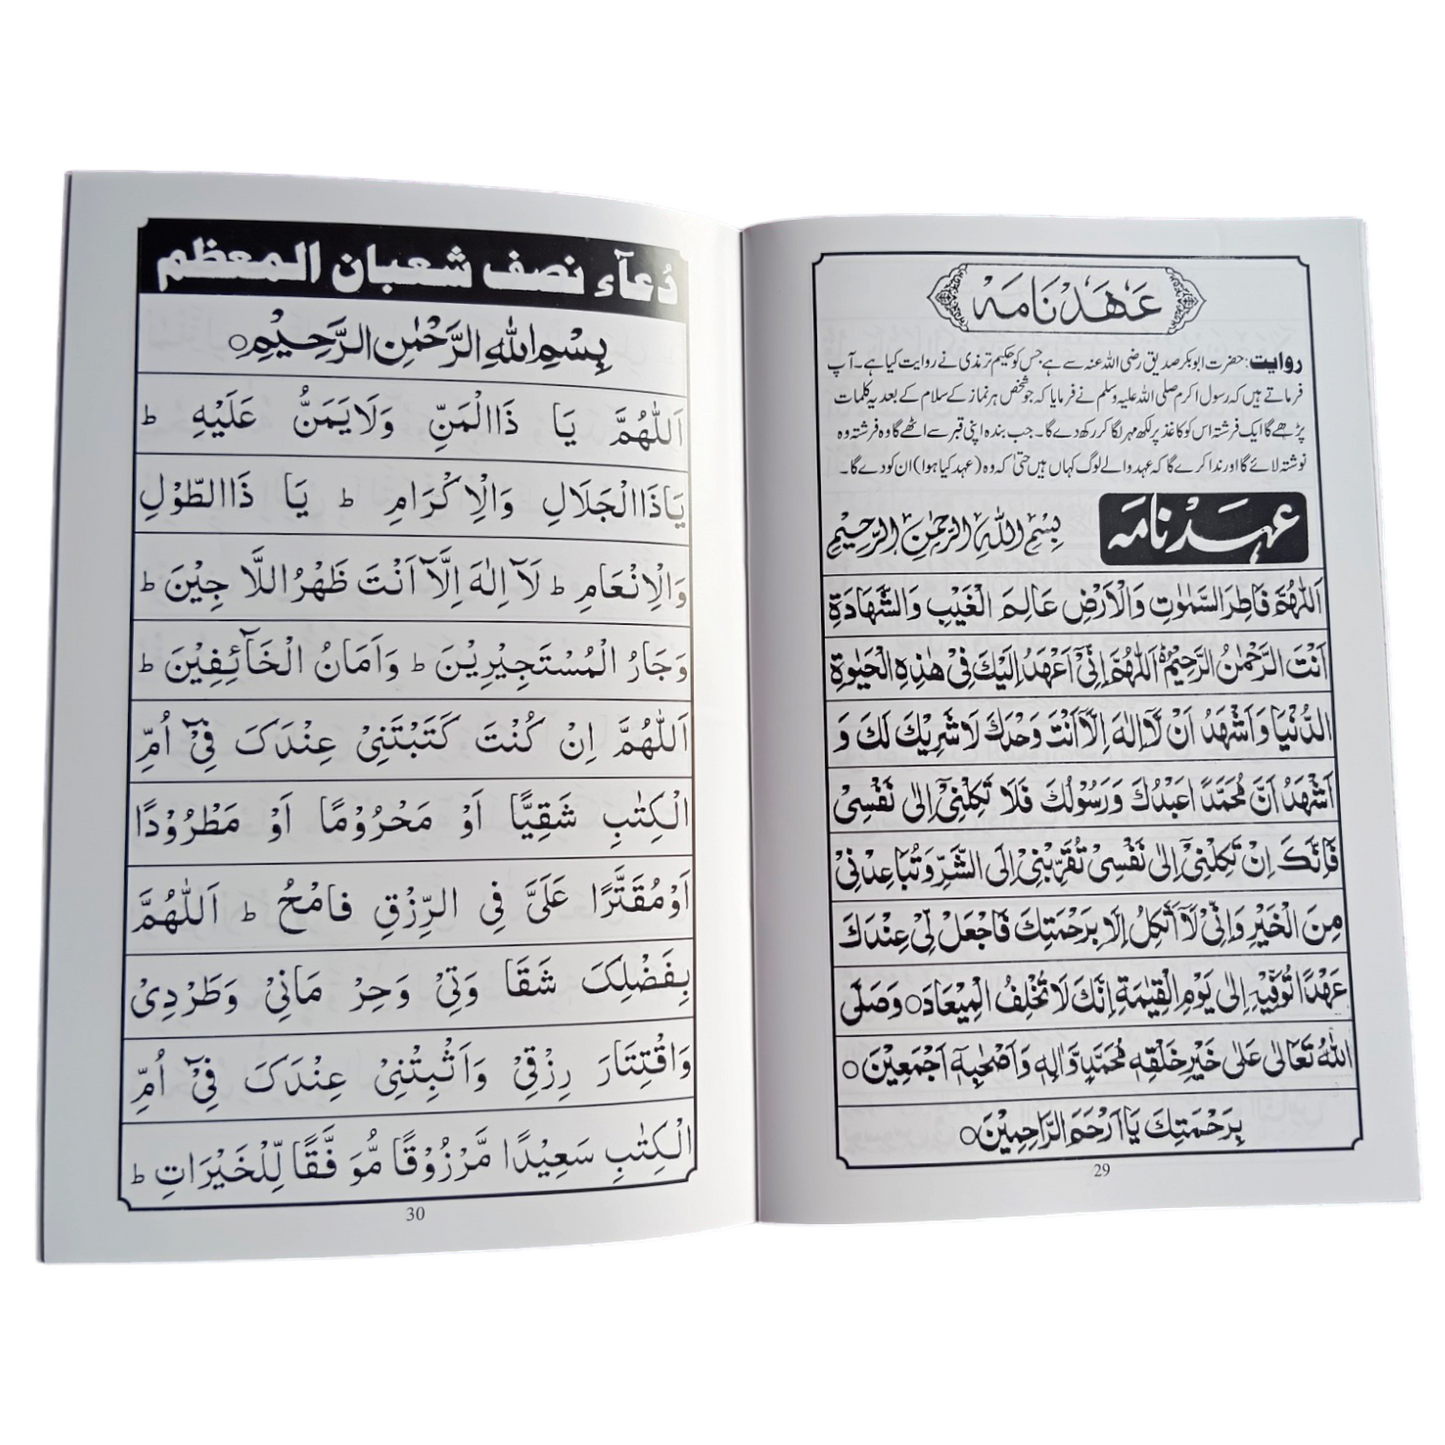 عَہَدْ نَامَہ
روایت: حضرت ابوبکر صدیق رضی اللہ عنہ سے ہے جس کو حکیم ترمذی نے روایت کیا ہے۔ آپ
فرماتے ہیں کہ رسول اکرم صلی اللہ علیہ وسلم نے فرمایا کہ جو شخص ہر نماز کے سلام کے بعد یہ کلمات
پڑھے گا ایک فرشتہ اس کو کاغذ پر لکھ مہر لگا کر رکھ دے گا۔ جب بندہ اپنی قبر سے اٹھے گا وہ فرشتہ وہ
نوشتہ لائے گا اور ندا کرے گا کہ عہد والے لوگ کہاں ہیں حتیٰ کہ وہ (عہد کیا ہوا) ان کو دے گا۔
عہدنامہ بِسْمِ اللّٰهِ الرَّحْمٰنِ الرَّحِيْمِ
اَللّٰهُمَّ فَاطِرَ السَّمٰوٰتِ وَالْاَرْضِ عَالِمَ الْغَيْبِ وَالشَّهَادَةِ
اَنْتَ الرَّحْمٰنُ الرَّحِيْمُ ؕ اَللّٰهُمَّ اِنِّىْٓ اَعْهَدُ اِلَيْكَ فِىْ هٰذِهِ الْحَيٰوةِ
الدُّنْيَا وَاَشْهَدُ اَنْ لَّآ اِلٰهَ اِلَّا اَنْتَ وَحْدَكَ لَا شَرِيْكَ لَكَ وَ
اَشْهَدُ اَنَّ مُحَمَّدًا عَبْدُكَ وَرَسُوْلُكَ فَلَا تَكِلْنِىْٓ اِلٰى نَفْسِىْ
فَاِنَّكَ اِنْ تَكِلْنِىْٓ اِلٰى نَفْسِىْ تُقَرِّبْنِىْ اِلَى الشَّرِّ وَتُبَاعِدْنِىْ
مِنَ الْخَيْرِ وَاِنِّىْ لَآ اَتَّكِلُ اِلَّا بِرَحْمَتِكَ فَاجْعَلْ لِّىْ عِنْدَكَ
عَهْدًا تُوَفِّيْهِ اِلٰى يَوْمِ الْقِيٰمَةِ اِنَّكَ لَا تُخْلِفُ الْمِيْعَادَ○ وَصَلَّى
اللّٰهُ تَعَالٰى عَلٰى خَيْرِ خَلْقِهٖ مُحَمَّدٍ وَّاٰلِهٖ وَاَصْحَابِهٖٓ اَجْمَعِيْنَ○
بِرَحْمَتِكَ يَآ اَرْحَمَ الرَّاحِمِيْنَ○
29
دُعآء نصف شعبان المعظم
بِسْمِ اللّٰهِ الرَّحْمٰنِ الرَّحِيْمِ○
اَللّٰهُمَّ يَا ذَاالْمَنِّ وَلَايَمَنُّ عَلَيْهِ ط
يَاذَاالْجَلَالِ وَالْاِكْرَامِ ط يَا ذَاالطَّوْلِ
وَالْاِنْعَامِ ط لَآ اِلٰهَ اِلَّآ اَنْتَ ظَهْرُ اللَّا جِيْنَ ط
وَجَارُ الْمُسْتَجِيْرِيْنَ ط وَاَمَانُ الْخَآئِفِيْنَ ط
اَللّٰهُمَّ اِنْ كُنْتَ كَتَبْتَنِىْ عِنْدَكَ فِىْٓ اُمِّ
الْكِتٰبِ شَقِيًّا اَوْ مَحْرُوْمًا اَوْ مَطْرُوْدًا
اَوْ مُقَتَّرًا عَلَىَّ فِى الرِّزْقِ فَامْحُ ط اَللّٰهُمَّ
بِفَضْلِكَ شَقَا وَتِىْ وَحِرْ مَانِىْ وَطَرْدِىْ
وَاقْتِتَارَ رِزْقِىْ وَاَثْبِتْنِىْ عِنْدَكَ فِىْٓ اُمِّ
الْكِتٰبِ سَعِيْدًا مَّرْزُوْقًا مُّوَ فَّقًا لِّلْخَيْرَاتِ ط
30